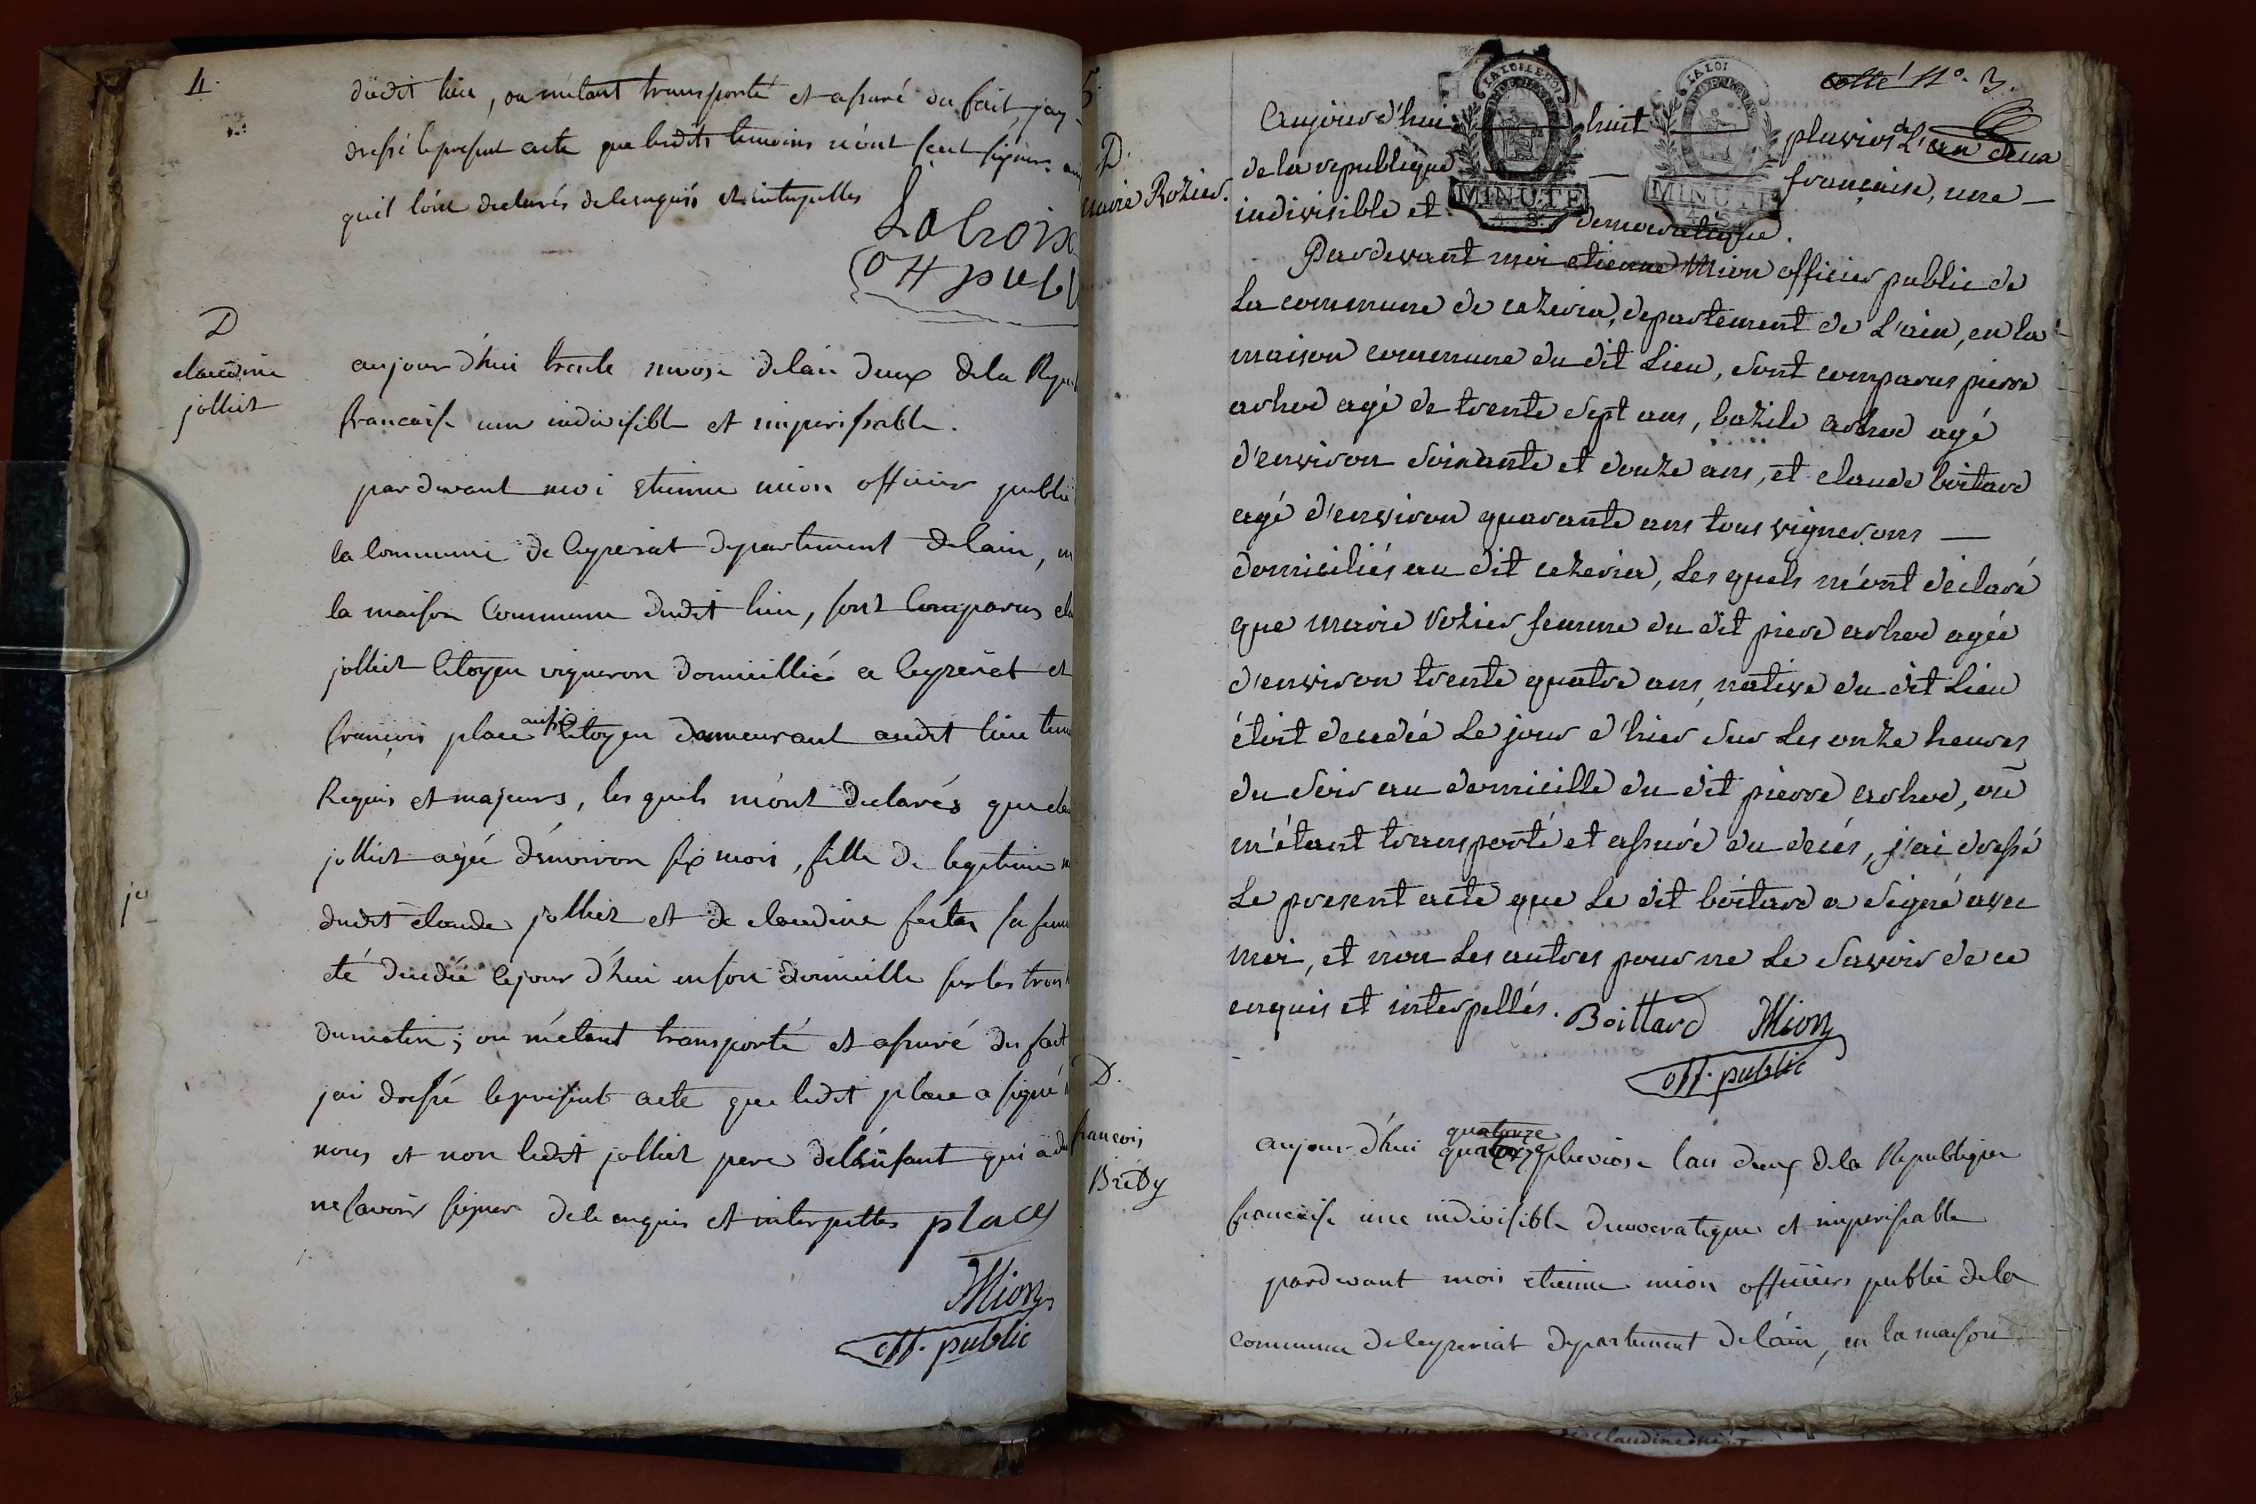 4.
dudit lieu, ou m'etant transporté et assuré du fait, j'ay
dressé le present acte que lesdits temoins n'ont seut signer
qu'il l'ont declarés de le enquis et interpelles
Lacroix
off publ
D
claudine
jolliet
aujourd'hui trente nivose de lan deux de la Repu
francaise une indivisible et imperissable.
pardevant moi etienne mion officier public
la commune de Ceyzeriat departement de lain, en
la maison Commune dudit lieu, sont Comparus cla
jolliet Citoyen vigneron domicillié a Ceyzeriat et
francois place aussi Citoyen demeurant audit lieu tem
Requis et majeurs, les quels m'ont declarés que cla
jolliet agée d'environ six mois, fille de legitime m
dudit claude jolliet et de claudine sa fem
été decedée le jour d'hui en son domicille sur les trois
du matin; ou m'etant transporté et assuré du fait
jai dressé le present acte que ledit place a signé
nous et non ledit jolliet pere de l'enfant qui a de
ne savoir signer de le enquis et interpelles place
Mion
off. public
5.
cotté N.° 3.
LA LOI LE ROI
LA LOI
MINUTE
4. S.
MINUTE
4. S.
D.
marie Rozier.
Aujourd'hui huit pluvios de L'an deux
de la republique — française, une —
indivisible et democratique.
Pardevant moi etienne Mion officier public de
la commune de cezeria, departement de L'ain, en la
maison commune du dit Lieu, sont comparus pierre
arhod agé de trente sept ans, bazile arhod agé
d'environ soixante et douze ans, et claude boitard
agé d'environ quarante ans tous vignerons —
domiciliés au dit cezeria, Les quels m'ont déclaré
que marie rozier femme du dit piere arhod agée
d'environ trente quatre ans, native du dit Lieu
étoit decedée Le jour d'hier sur Les onze heures
du soir au domicille du dit pierre arhod, ou
m'étant transporté et assuré du decés, j'ai dressé
Le present acte que Le dit boitard a signé avec
moi, et non Les autres pour ne Le savoir de ce
enquis et interpellés. Boittard Mion
off. public
D.
francois
Brédy
aujourd'hui quatorze
pluviose lan deux de la Republique
francaise une indivisible democratique et imperissable
pardevant mois etienne mion officiers public de la
commune de Ceyzeriat departement de l'ain, en la maison